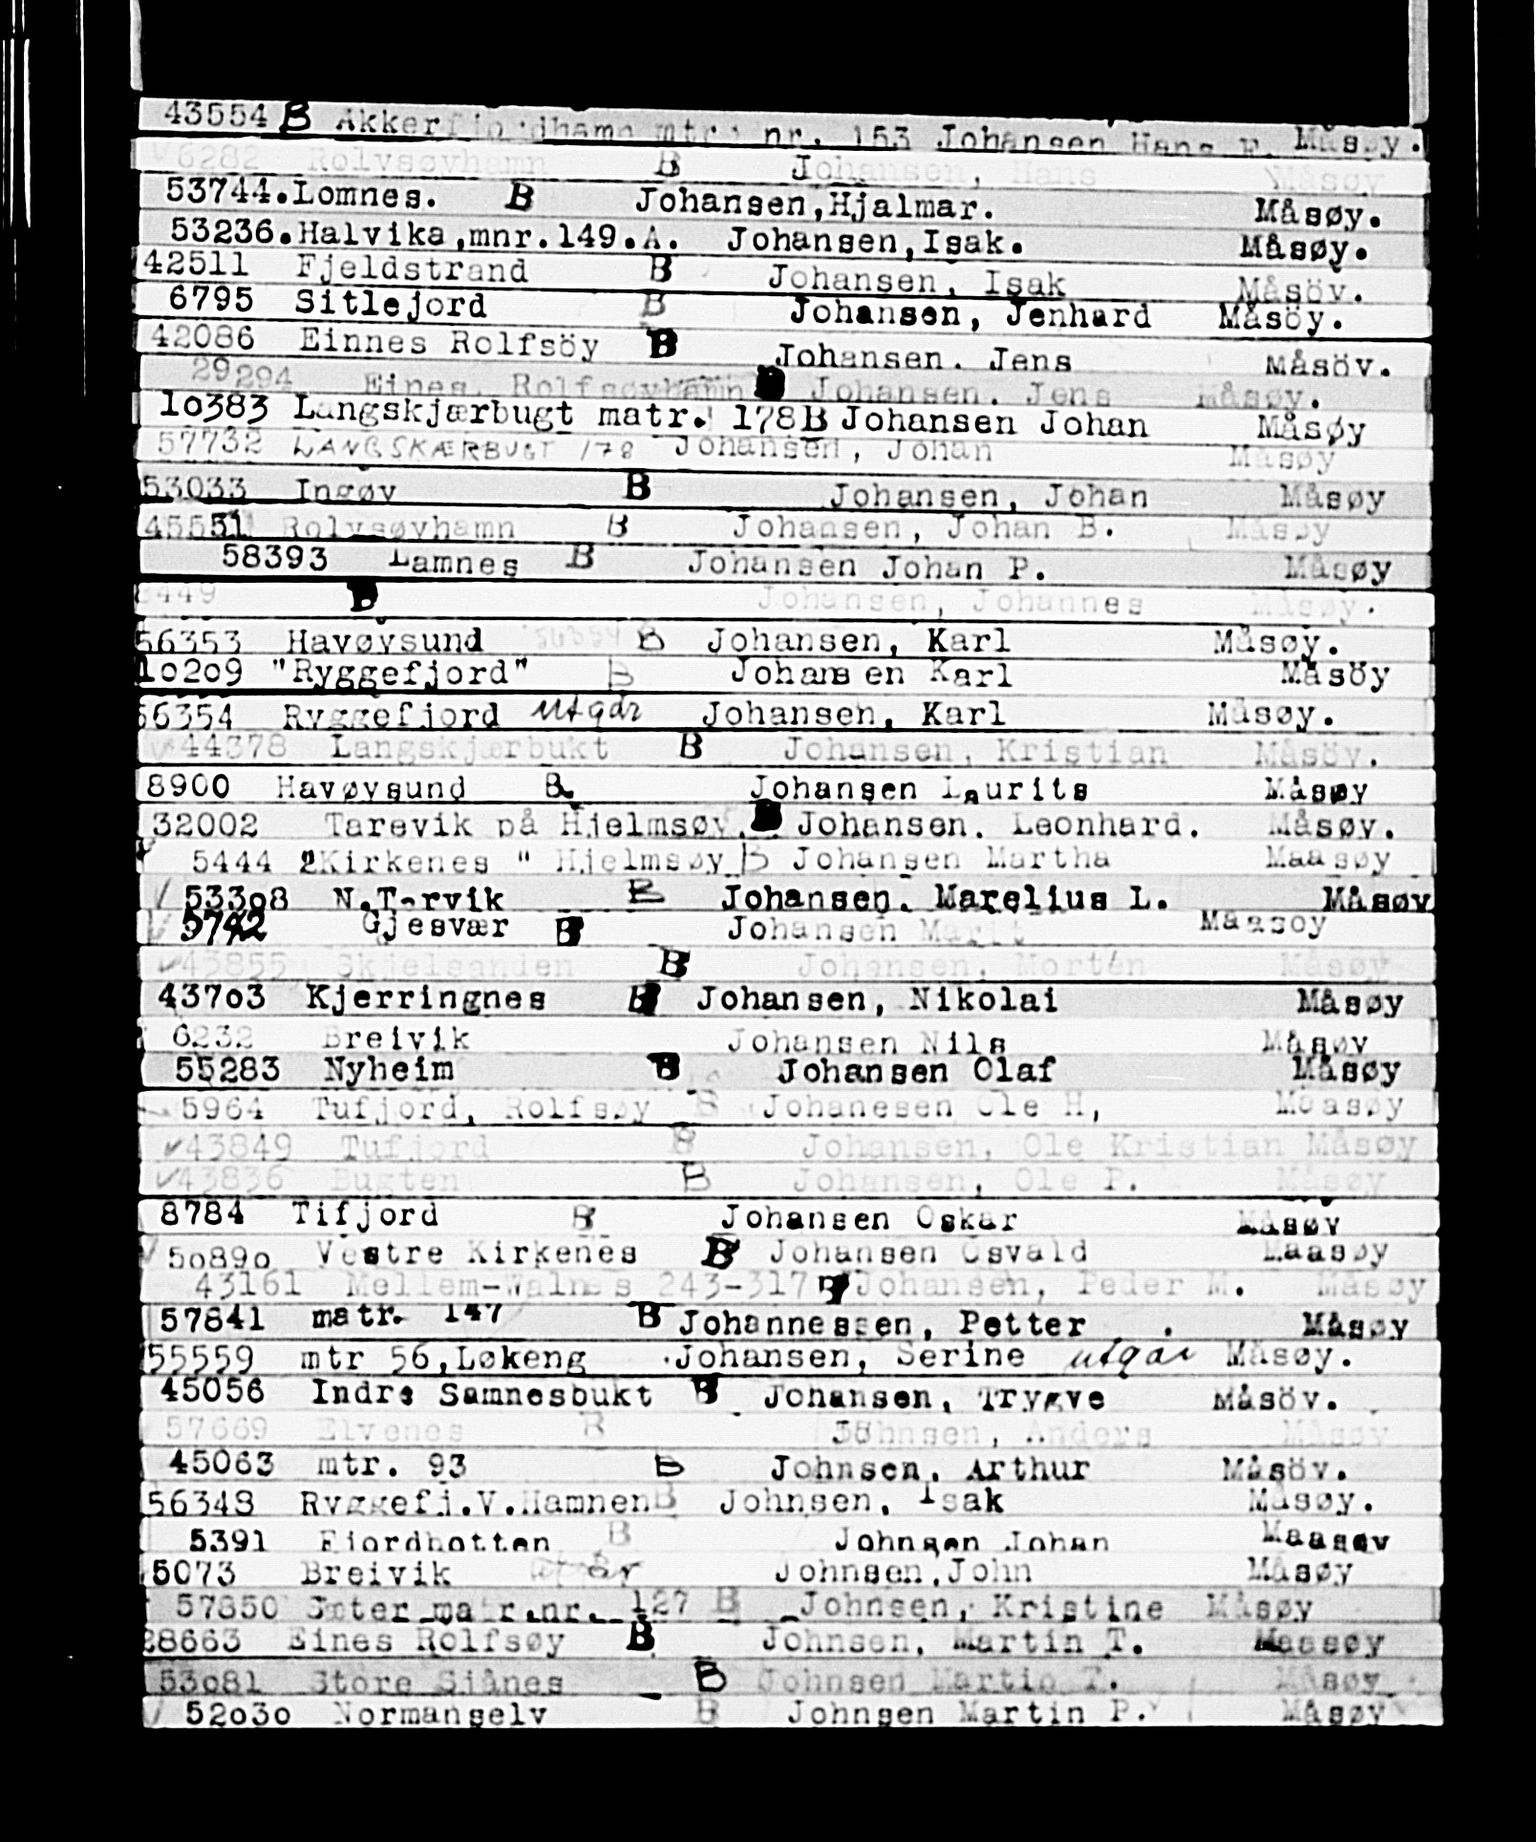 43554 B Akkerfjordhamn mtr. nr. 153 Johansen Hans Måsøy.
6282 Rolvsøyhamn B Johansen, Hans Måsøy
53744. Lomnes. B Johansen,Hjalmar. Måsøy.
53236. Halvika,mnr.149.A. Johansen,Isak. Måsøy.
42511 Fjeldstrand B Johansen, Isak Måsöy.
6795 Sitlejord B Johansen, Jenhard Måsöy.
42086 Einnes Rolfsöy B Johansen. Jens Måsöv.
29294 Eines, Rolfsøyhamn Johansen. Jens Måsøy.
10383 Langskjærbugt matr. 178 B Johansen Johan Måsøy
57732 LANGSKÆRBUGT 178 Johansen, Johan Måsøy
53033 Ingøy B Johansen, Johan Måsøy
45551 Rolvsøyhamn B Johansen, Johan B. Måsøy
58393 Lamnes B Johansen Johan P. Måsøy
8449 B Johansen, Johannes Måsøy.
56353 Havøysund 56354 B Johansen, Karl Måsøy.
10209 "Ryggefjord" B Johansen Karl Måsöy
56354 Ryggefjord utgår Johansen, Karl Måsøy.
44378 Langskjærbukt B Johansen, Kristian Måsöv.
8900 Havøysund B. Johansen Laurits Måsøy
32002 Tarevik på Hjelmsøy. Johansen. Leonhard. Måsøy.
5444 2Kirkenes " Hjelmsøy B Johansen Martha Maasøy
53308 N.Tarvik B Johansen. Marelius L. Måsøy
5742 Gjesvær B Johansen Marit Maasoy
43855 Skjelsanden B Johansen, Morten Måsøy
43703 Kjerringnes B Johansen, Nikolai Måsøy
6232 Breivik Johansen Nils Måsøy
55283 Nyheim B Johansen Olaf Måsøy
5964 Tufjord, Rolfsøy B Johanesen Ole H, Maasøy
43849 Tufjord B Johansen, Ole Kristian Måsøy
43836 Bugten B Johansen, Ole P. Måsøy
8784 Tifjord B Johansen Oskar Måsøy
50890 Vestre Kirkenes B Johansen Osvald Maasøy
43161 Mellem-Walnes 243-317 B Johansen, Peder M. Måsøy
57841 matr. 147 B Johannessen, Petter Måsøy
55559 mtr 56,Løkeng Johansen, Serine utgår Måsøy.
45056 Indre Samnesbukt B Johansen, Trygve Måsöv.
57669 Elvenes B Johnsen, Anders Måsøy
45063 mtr. 93 B Johnsen, Arthur Måsöv.
56348 Ryggefj.V.Hamnen B Johnsen, Isak Måsøy.
5391 Fjordbotten B Johnsen Johan Maasøv
5073 Breivik utgår Johnsen,John Måsøy
57850 Sæter matr.nr. 127 B Johnsen, Kristine Måsøy
28663 Eines Rolfsøy B Johnsen, Martin T. Maasøy
53081 Store Sjånes B Johnsen Martin T. Måsøy
52030 Normanselv B Johnsen Martin P. Måsøy